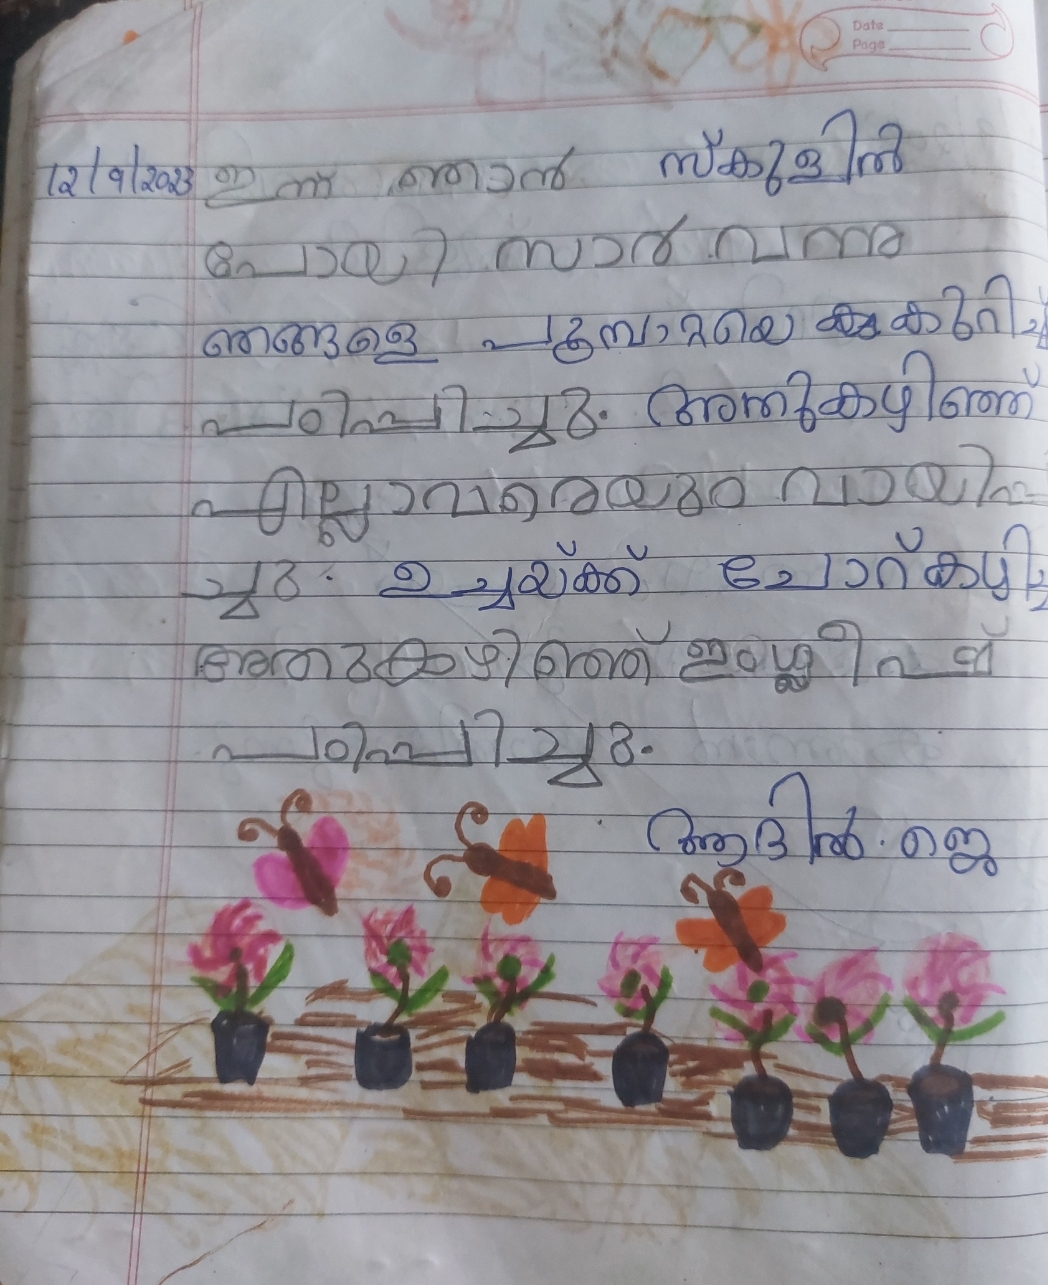 Date
Page
12/9/2023 ഇന്ന് ഞാൻ സ്കൂളിൽ
പോയി സാർ വന്നു
ഞങ്ങളെ പൂമ്പാറ്റയെ കുറിച്ച്
പഠിപ്പിച്ചു. അതുകഴിഞ്ഞ്
എല്ലാവരെയും വായിപ്പി
ച്ചു. ഉച്ചയ്ക്ക് ചോറ് കഴിച്ചു
അതുകഴിഞ്ഞ് ഇംഗ്ലീഷ്
പഠിപ്പിച്ചു.
ആദിൽ. ജെ